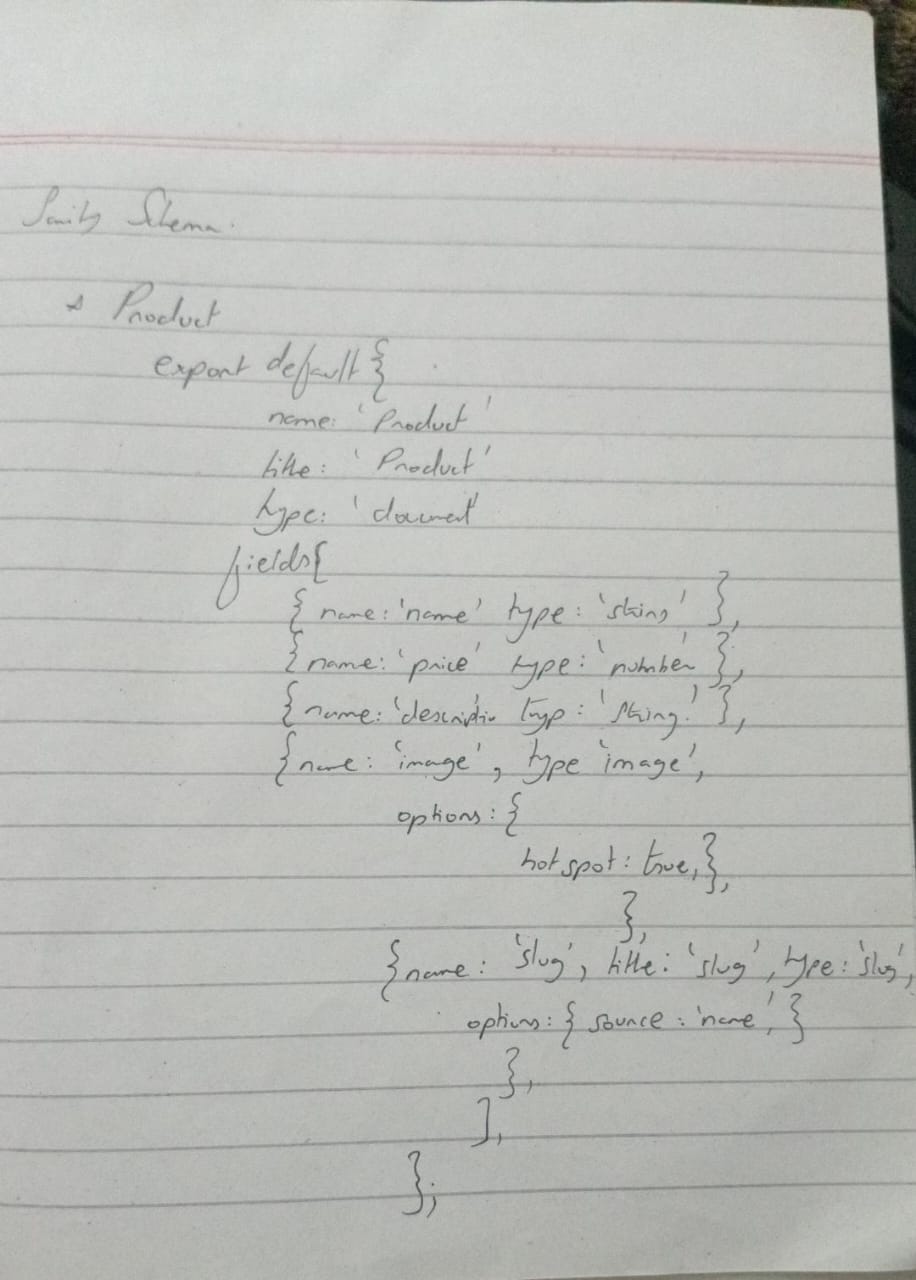 Sanity Schema.
* Product
export default {
name: 'Product'
title: 'Product'
type: 'document'
fields [
{ name: 'name' type: 'string' },
{ name: 'price' type: 'number' },
{ name: 'descriptio typ: 'string.' },
{ name: 'image', type 'image',
options: {
hotspot: true, },
},
{ name: 'slug', title: 'slug', type: 'slug',
options: { source: 'name', }
},
],
};